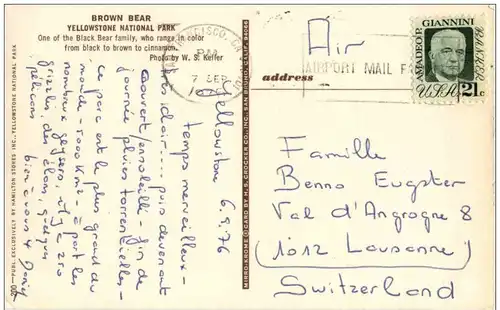 BROWN BEAR
YELLOWSTONE NATIONAL PARK
One of the Black Bear family, who range in color
from black to brown to cinnamon.
Photo by W. S. Keller
CISCO, CA
PM
7 SEP
AIRPORT MAIL FA
AMADEO P. GIANNINI
BANKER
USA 21c
Air
address
Yellowstone 6.9.76
temps merveilleux -
très clair.... puis devenant
couvert/ensoleillé - fin de
journée pluies torrentielles -
ce parc est le plus grand du
monde - 7000 km2 - à part les
nombreux geysers, il y a 210
grizzlis, des élans, quelques
pélicans.
bien à vous 4
Famille
Benno Eugster
Val d'Angrogne 8
(1012 Lausanne)
Switzerland
MIRRO-KROME ® CARD BY H. S. CROCKER CO., INC., SAN BRUNO, CALIF. 94066
PUB. EXCLUSIVELY BY HAMILTON STORES, INC., YELLOWSTONE NATIONAL PARK